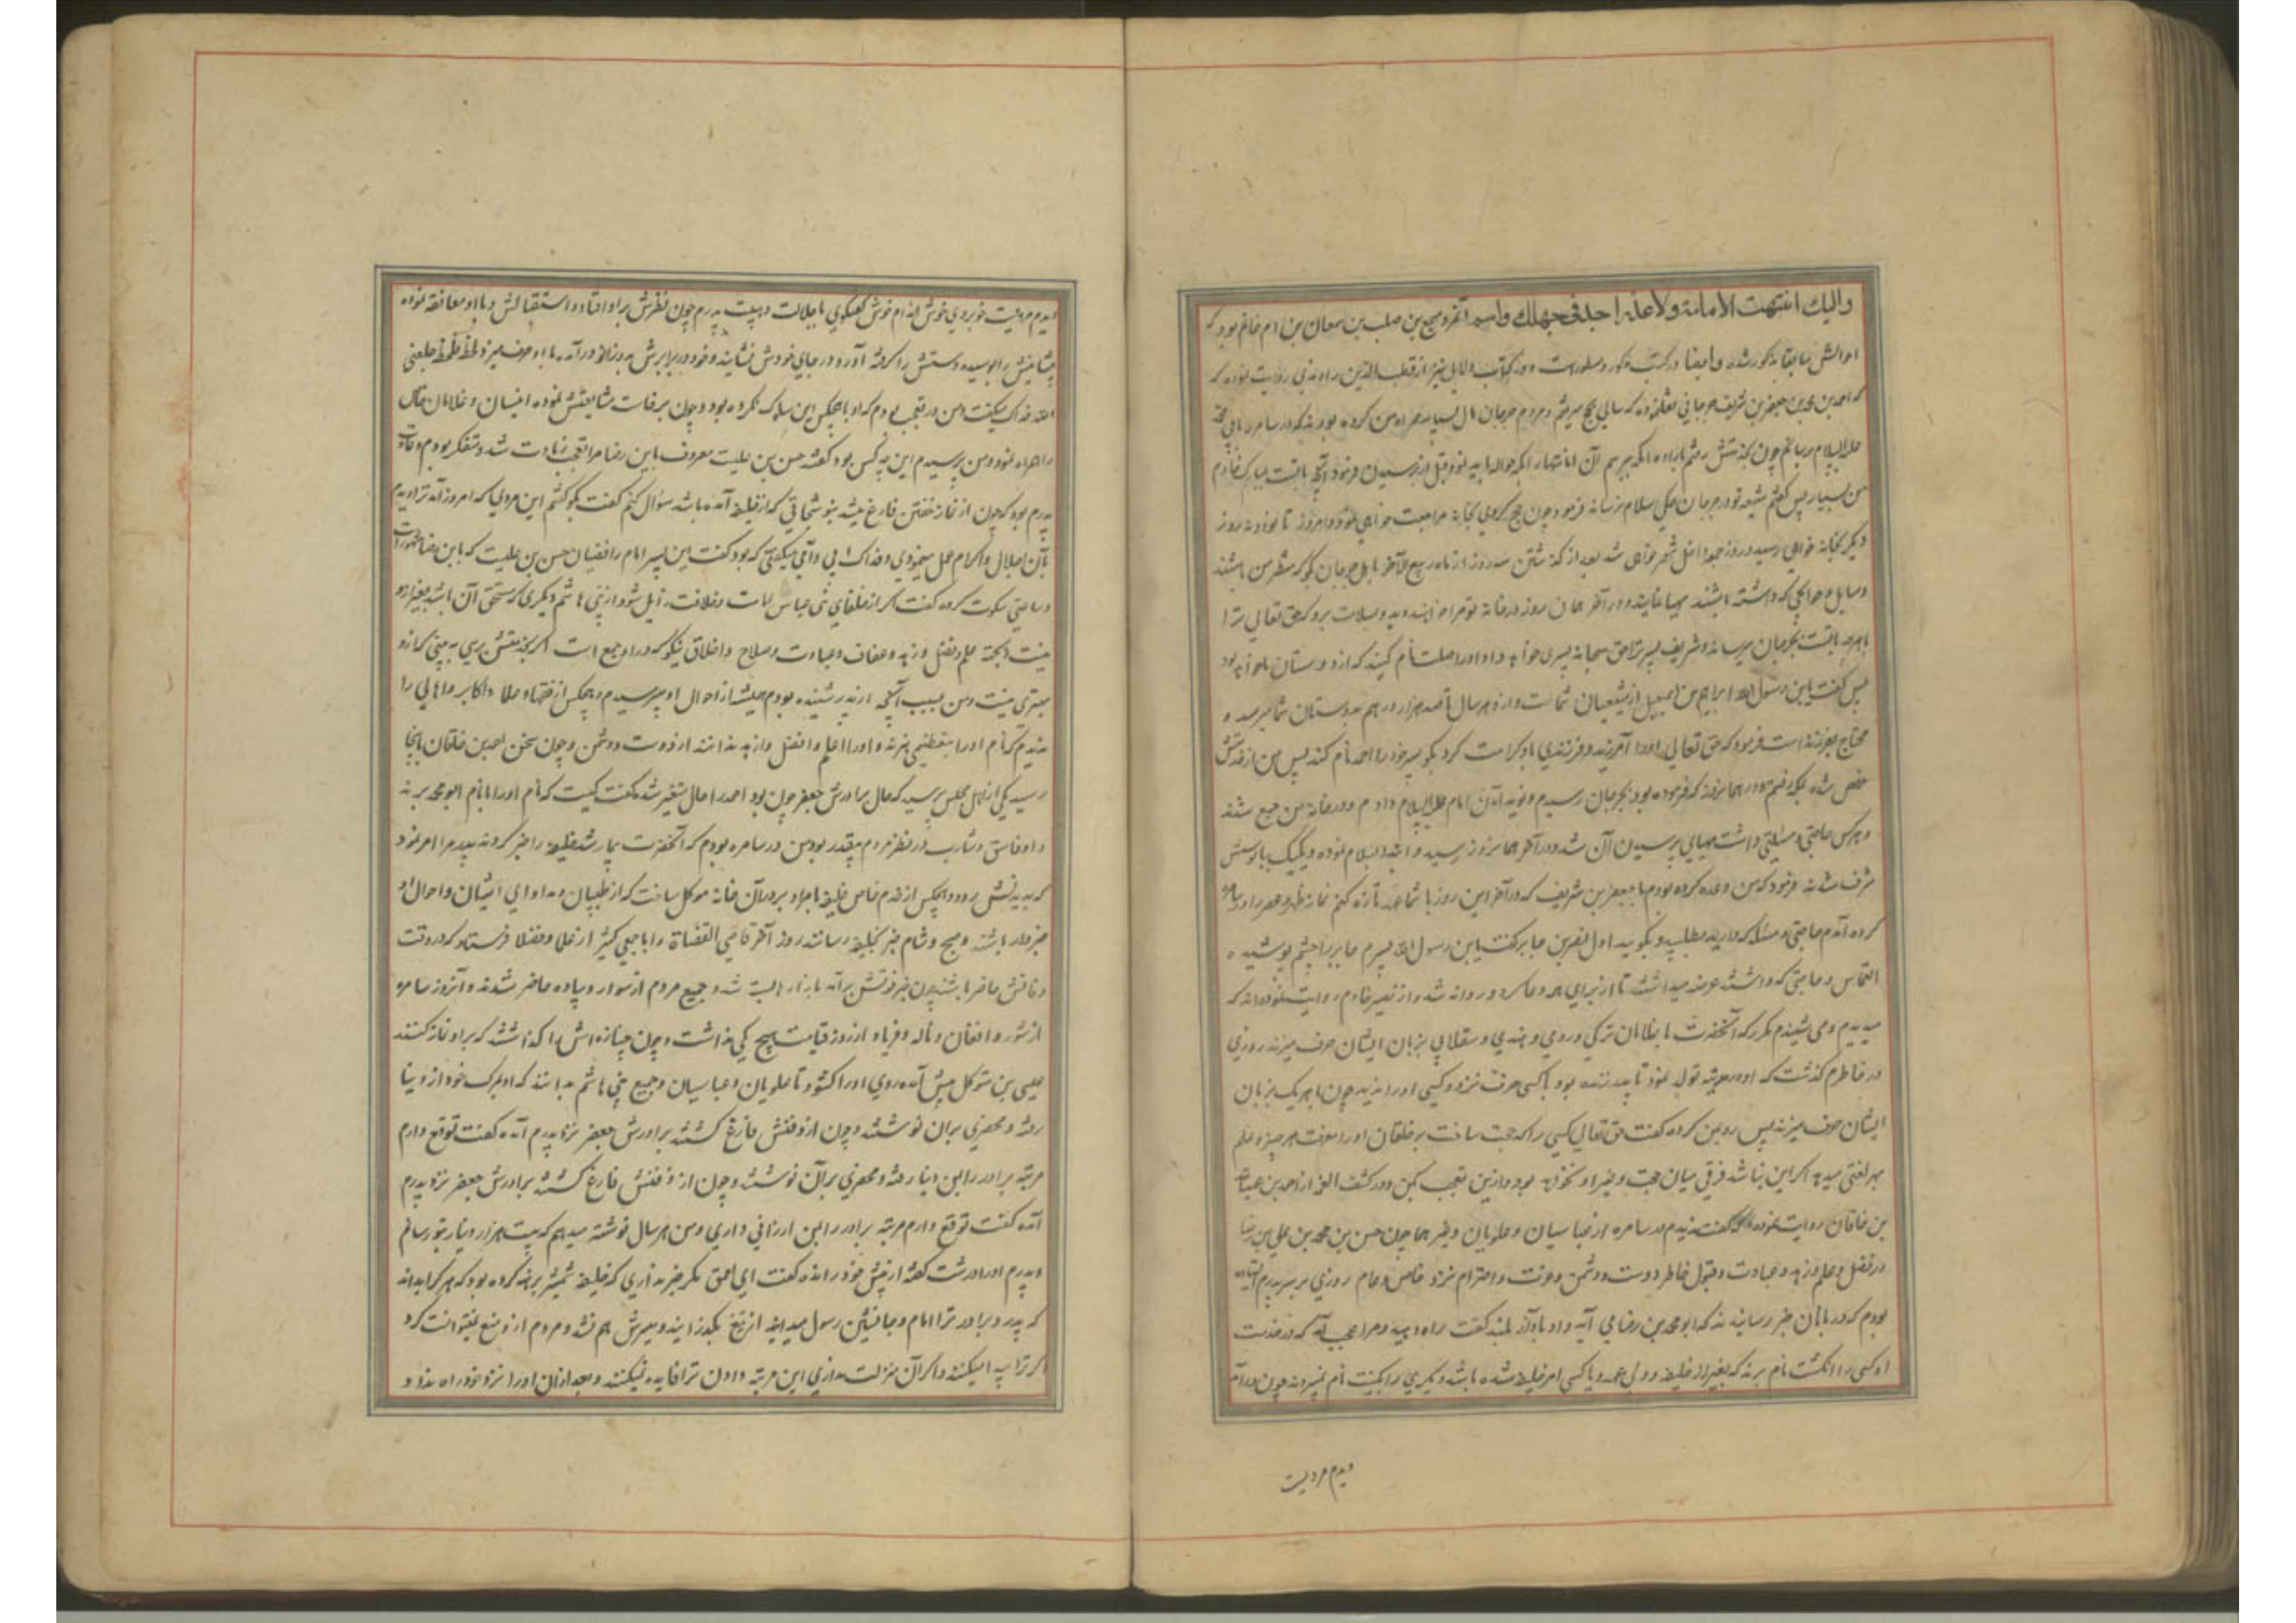 والیك انتهت الامامة ولا عذر لاحد فی جهلك واسم آنمرد مهجع بن صلب بن سمعان بن ام غانم بود که
احوالش سابقا مذکور شده و ایضا در کتب مذکور و مسطور است و در کتاب دلایل نیز از قطب الدین راوندی روایت نموده که
که احمد بن محمد بن جعفر بن شریف جرجانی نقل نموده که سالی بحج میرفتم و مردم جرجان مال بسیار همراه من کرده بودند که در سامره بامام
علیه السلام رسانم چون بخدمتش رفتم باراده آنکه بپرسم آن امانتها را بکه حواله باید نمود قبل از پرسیدن فرمود آنچه با تست بمبارک خادم
من بسپار پس گفتم شیعه تو در جرجان همگی سلام میرسانند فرمود چون حج کردی بخانه مراجعت خواهی نمود و امروز تا نود و نه روز
دیگر بخانه خواهی رسید و روز جمعه داخل شهر خواهی شد بعد از گذشتن سه روز از ماه ربیع الآخر باهل جرجان بگو که منتظر من باشند
و مسایل و حوایجی که داشته باشند مهیا نمایند و در آخر همان روز در خانه تو مرا خواهند دید و بسلامت برو که حق تعالی ترا
با هرچه با تست بجرجان میرساند و شریف پسر ترا حق سبحانه پسری خواهد داد او را صلت نام کنید که از دوستان ما خواهد بود
پس گفت یابن رسول الله ابراهیم بن اسمعیل از شیعیان شماست و از هر سال تا صد هزار درهم بدوستان شما میرسد و
محتاج بفرزند است فرمود که حق تعالی او را آمرزید و فرزندی باو کرامت کرد بگو پسر خود را احمد نام کند پس من از خدمتش
مرخص شده بمکه رفتم و در همان روز که فرموده بود بجرجان رسیدم و نوید آمدن امام علیه السلام دادم و در خانه من جمع شدند
و هرکس حاجتی و مسئلتی داشت مهیای پرسیدن آن شد و در آخر همان روز رسید و ابتدا بسلام نموده و یکیک بپابوسش
مشرف شدند فرمود که من وعده کرده بودم با جعفر بن شریف که در آخر این روز با شما عهد تازه کنم نماز ظهر و عصر را در سامره
کرده آمدم حاجتی و مسئله که دارید بطلبید و بگویید اول نضر بن جابر گفت یابن رسول الله پسرم جابر را چشم پوشیده
التماس و حاجتی که داشتند عرضه میداشتند تا از برای همه دعا کرد و روانه شد و از نصیر خادم روایت نموده اند که
میدیدم و می شنیدم مکرر که آنحضرت با غلامان ترکی و رومی و هندی و سقلابی بزبان ایشان حرف میزند روزی
در خاطرم گذشت که او در مدینه تولد نمود تا پدر زنده بود با کسی حرف نزد و کسی او را ندید چون با هر یک بزبان
ایشان حرف میزند پس رو بمن کرده گفت حق تعالی کسی را که حجت ساخت بر خلقان او را معرفت هر چیز و علم
بهر لغتی میدهد اگر این نباشد فرقی میان حجت و غیر او نخواهد بود و ازین تعجب مکن و در کشف الغمه از احمد بن عبدالله
بن خاقان روایت نموده که گفت ندیدم در سامره از عباسیان و علویان و غیر هما چون حسن بن محمد بن علی بن رضا
در فضل و علم و زهد و عبادت و قبول خاطر دوست و دشمن و عزت و احترام نزد خاص و عام روزی بر سر پدرم ایستاده
بودم که دربانان خبر رسانیدند که ابو محمد بن رضا می آید و او بآواز بلند گفت راه دهید و مرا عجب آمد که در خدمت
او کسی را بکنیت نام برند که بغیر از خلیفه و ولی عهد و یا کسی امر خلیفه شده باشد دیگری را بکنیت نام نمیبردند چون در آمد
دیدم مردیست
دیدم مردیست خوبروی خوش اندام خوش گفتگوی با جلالت و هیبت پدرم چون نظرش بر او افتاد و استقبالش و با او معانقه نموده
پیشانیش را بوسیده دستش را گرفته آورد و در جای خودش نشانید و خود در برابرش بدو زانو در آمده با او حرف میزد و لحظه فلحظه جعلنی
الله فداک میگفت و من در تعجب بودم که او با هیچکس این سلوک نکرده بود و چون برخاست مشایعتش نموده اعیان و غلامان خاص
را همراه نمود و من پرسیدم این چه کس بود گفتند حسن بن علیست معروف بابن رضا مرا تعجب زیادت شد و متفکر بودم و عادت
پدرم بود که چون از نماز خفتن فارغ میشد بنوشتجاتی که از خلیفه آمده باشد سؤال کنم گفت بگو گفتم این مردی که امروز آمد ترا دیدم
بآن اجلال و اکرام عمل مینمودی و فداک ابی و امی میگفتی که بود گفت این پسر امام رافضیان حسن بن علیست که بابن رضا مشهور است
و ساعتی سکوت کرده گفت اگر از خلفای بنی عباس امامت و خلافت زایل شود از بنی هاشم دیگری که مستحق آن باشد بغیر ازو
نیست بجهة علم و فضل و زهد و عفاف و عبادت و صلاح و اخلاق نیکو که در او جمع است اگر بخدمتش برسی به بینی که ازو
بهتری نیست و من بسبب آنچه از پدر شنیده بودم همیشه از احوال او میپرسیدم و هیچکس از فقها و علما و اکابر و اهالی را
ندیدم که نام او را بتعظیمی نبرند و او را اعلم و افضل و ازهد ندانند از دوست و دشمن و چون سخن احمد بن خاقان باینجا
رسید یکی از اهل مجلس پرسید که حال برادرش جعفر چون بود احمد را حال متغیر شد و گفت کیست که نام او را با نام ابو محمد برند
و او فاسق و شارب در نظر مردم بیقدر بود من در سامره بودم که آنحضرت بیمار شد خلیفه را خبر کردند پدر مرا امر نمود
که بدیدنش رود و هیچکس از خدم خاص خلیفه با جراد بر در آن خانه موکل ساخت که از طبیبان و مداوای ایشان و احوال او
خبردار باشند و صبح و شام خبر بخلیفه رسانند روز آخر قاضی القضاة را با جمعی کثیر از علما و فضلا فرستاد که در وقت
وفاتش حاضر باشند چون خبر فوتش بر آمد بازارها بسته شد و جمیع مردم از سوار و پیاده حاضر شدند و آنروز سامره
از شور و افغان و ناله و فریاد از روز قیامت هیچ کمی نداشت و چون جنازه اش را گذاشتند که بر او نماز کنند
عیسی بن متوکل پیش آمده روی او را گشود تا علویان و عباسیان و جمیع بنی هاشم بدانند که او بمرگ خود از دنیا
رفته و محضری بران نوشتند و چون از دفنش فارغ گشتند برادرش جعفر نزد پدرم آمده گفت توقع دارم
مرتبه برادر را بمن دنیا رفته و محضری برآن نوشتند و چون از دفنش فارغ گشتند برادرش جعفر نزد پدرم
آمده گفت توقع دارم مرتبه برادر را بمن ارزانی داری و من هر سال نوشته میدهم که بیست هزار دینار بتو رسانم
و پدرم او را درشت گفته از پیش خود رانده گفت ای احمق مگر خبر نداری که خلیفه شمشیر برهنه کرده بود که هر که اباند
که پدر و برادر ترا امام و جانشین رسول میدانند از تیغ بگذرانید و میسرش هم نشد و مردم ازو منع نتوانست کرد
اگر ترا پیدا میکنند و اگر آن منزلت نداری این مرتبه دادن ترا فایده نمیکند و بعد از آن او را نزد خود راه نداد و